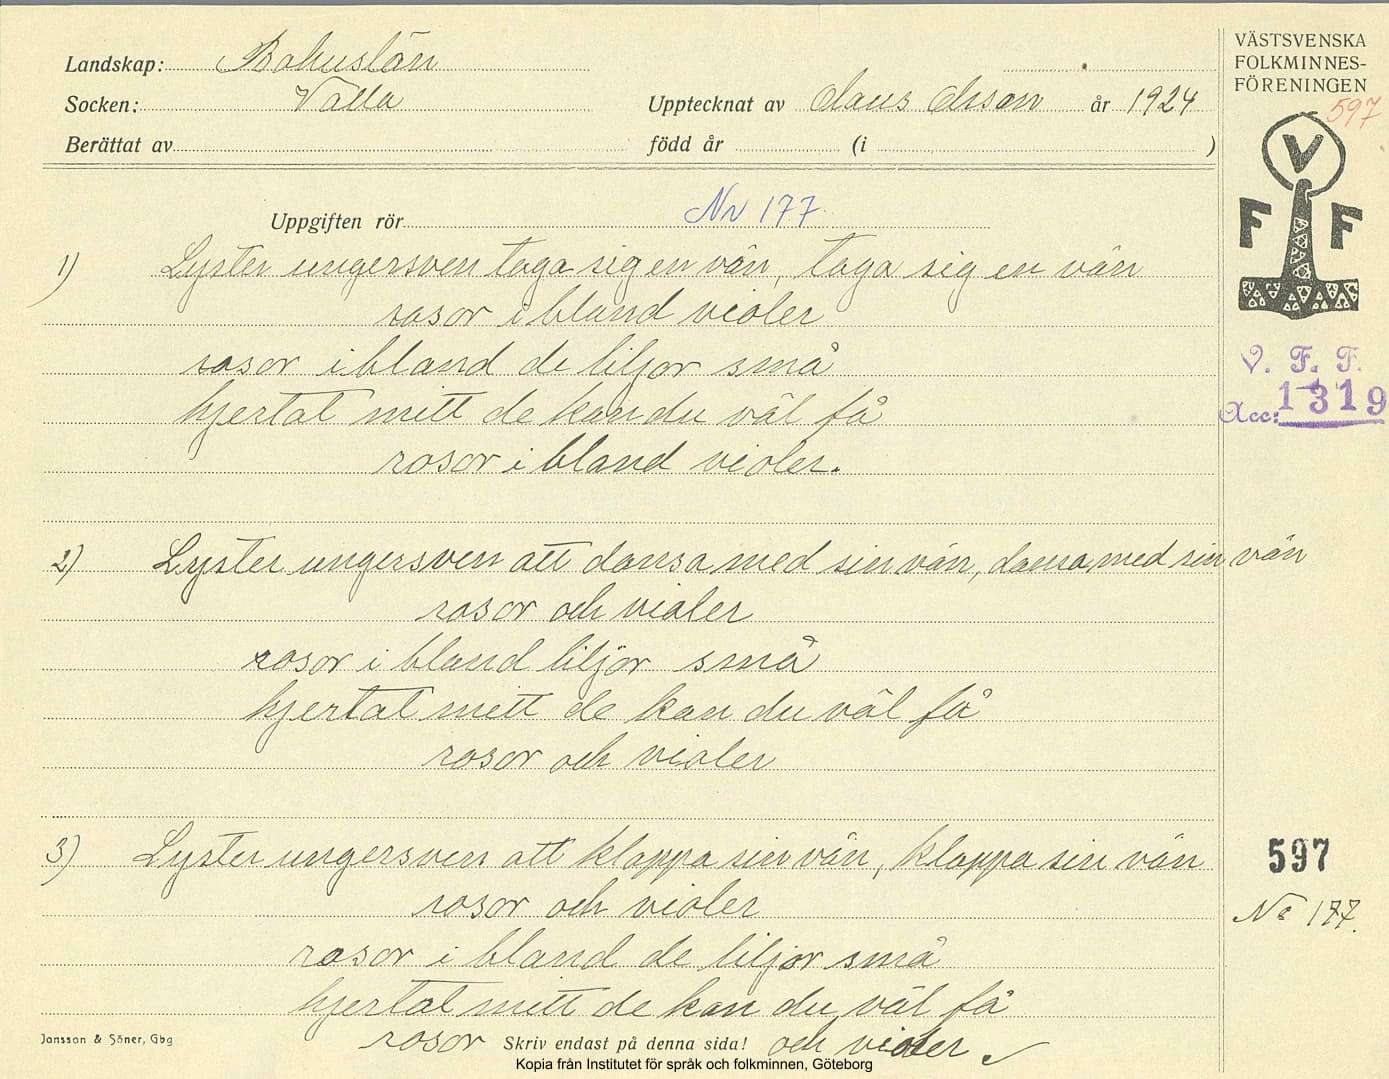 Landskap: Bohuslän
Socken: Valla
Upptecknat av Claus Olsson år 1924
Berättat av
född år (i )
VÄSTSVENSKA
FOLKMINNES-
FÖRENINGEN
597
V
F F
V. F. F.
Acc: 1319
Uppgiften rör Nr 177
1) Lyster ungersven taga sig en vän, taga sig en vän
rosor i bland violer
rosor i bland de liljor små
hjertat mitt de kan du väl få
rosor i bland violer.
2) Lyster ungersven att dansa med sin vän, dansa med sin vän
rosor och violer
rosor i bland liljor små
hjertat mitt de kan du väl få
rosor och violer
3) Lyster ungersven att klappa sin vän, klappa sin vän
rosor och violer
rosor i bland de liljor små
hjertat mitt de kan du väl få
rosor och violer
597
No 177.
Jonsson & Söner, Gbg
Skriv endast på denna sida!
Kopia från Institutet för språk och folkminnen, Göteborg